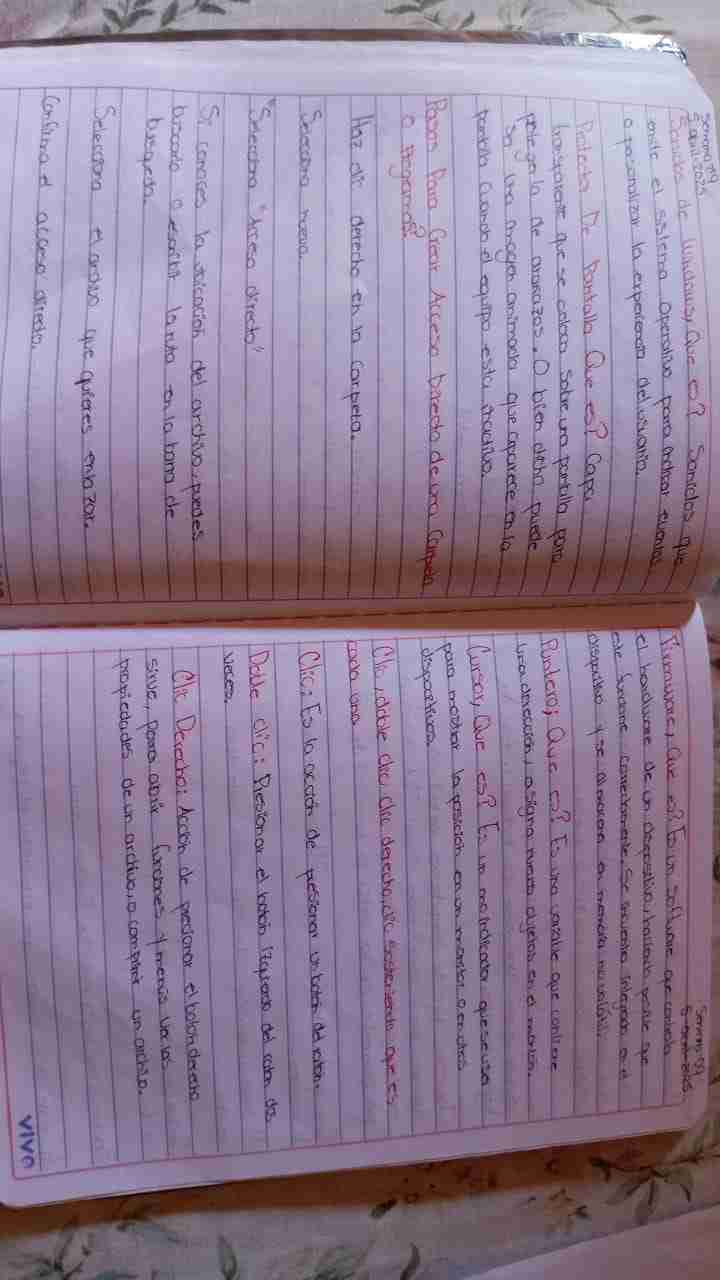 Semana 09
5-abril-2025
Sonidos de Windows, Que es? Sonidos que
emite el sistema operativo para indicar eventos
o personalizar la experiencia del usuario.
Protector De Pantalla Que es? Capa
transparente que se coloca sobre una pantalla para
protegerla de arañazos. O bien dicho puede
ser una imagen animada que aparece en la
pantalla cuando el equipo esta inactivo.
Pasos Para Crear Acceso Directo de una Carpeta
o Programas?
Haz clic derecho en la Carpeta.
Selecciona nuevo.
"Selecciona "Acceso directo"
Si conoces la ubicación del archivo, puedes
buscarlo o escribir la ruta en la barra de
busqueda.
Selecciona el archivo que quieres enlazar.
Confirma el acceso directo.
Semana 09
5-abril-2025
Firmware, Que es? Es un software que controla
el hardware de un dispositivo, haciendo posible que
este funcione correctamente. Se encuentra integrado en el
dispositivo y se almacena en memoria no volátil.
Puntero, Que es? Es una variable que contiene
una dirección, asigna nuevos objetos en el monton.
Cursor, Que es? Es un indicador que se usa
para mostrar la posición en un monitor o en otros
dispositivos.
Clic, doble clic, clic derecho, clic sosteniendo que es
cada uno
Clic: Es la acción de presionar un boton del raton.
Doble clic: Presionar el botón Izquierdo del raton dos
veces.
Clic Derecho: Acción de presionar el boton derecho
sirve, para abrir funciones y menús ver las
propiedades de un archivo, o comprimir un archivo.
VIVO